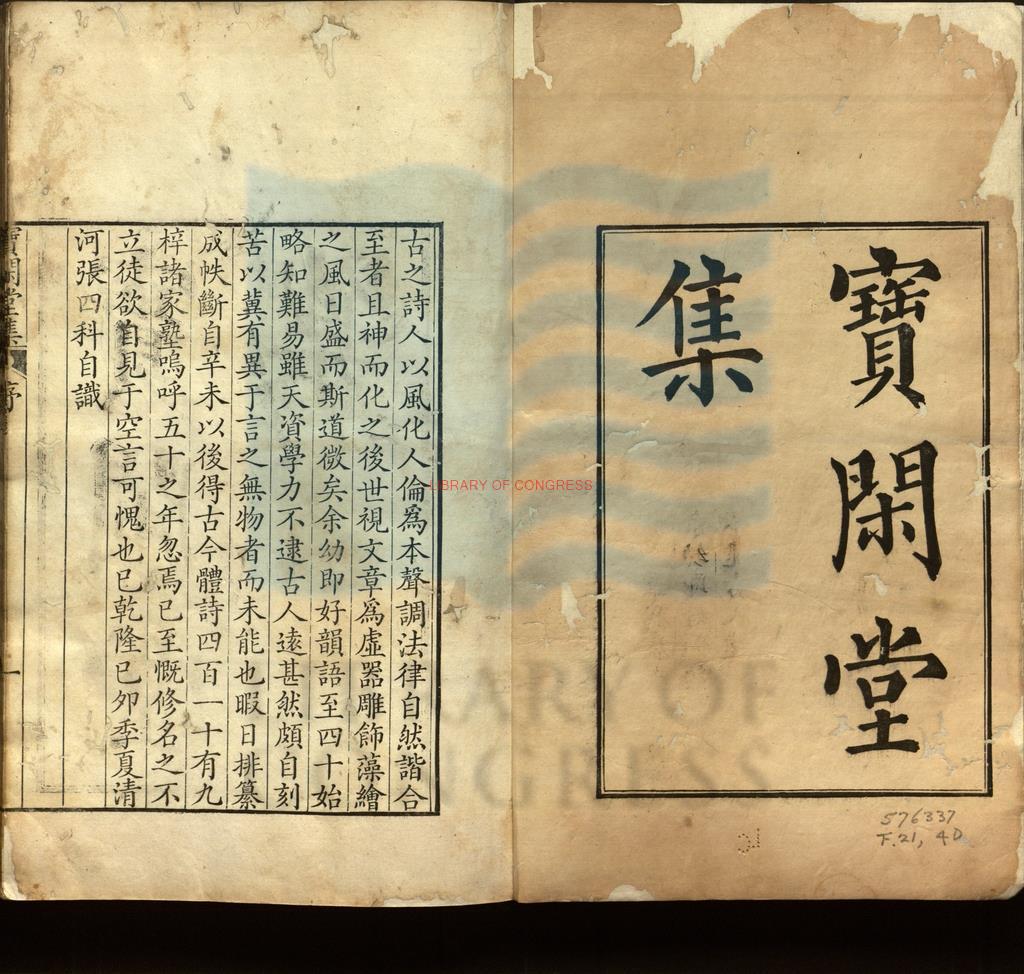 寶閑堂
集
古之詩人以風化人倫爲本聲調法律自然諧合
至者且神而化之後世視文章爲虛器雕飾藻繪
之風日盛而斯道微矣余幼即好韻語至四十始
略知難易雖天資學力不逮古人遠甚然頗自刻
苦以冀有異于言之無物者而未能也暇日排纂
成帙斷自辛未以後得古今體詩四百一十有九
梓諸家塾嗚呼五十之年忽焉已至慨修名之不
立徒欲自見于空言可愧也已乾隆己夘季夏清
河張四科自識
寶閑堂集 序
一
576337
F.21, 4D
LIBRARY OF CONGRESS
LIBRARY OF
CONGRESS